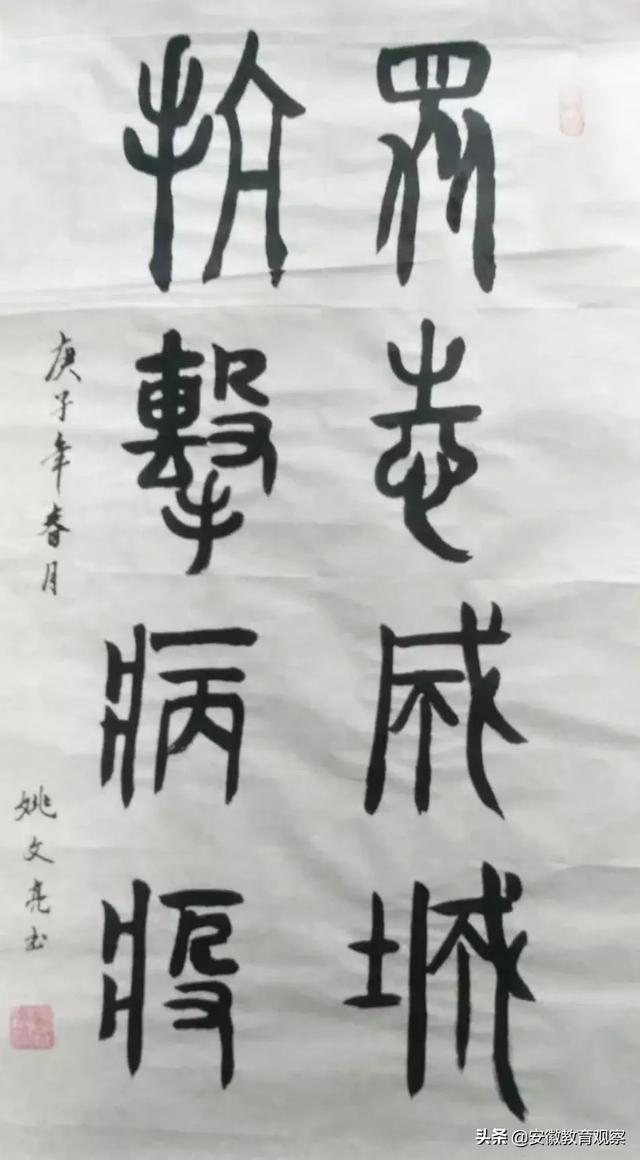 眾志成城
抗擊病疫
庚子年春月
姚文亮书
头条 @安徽教育观察